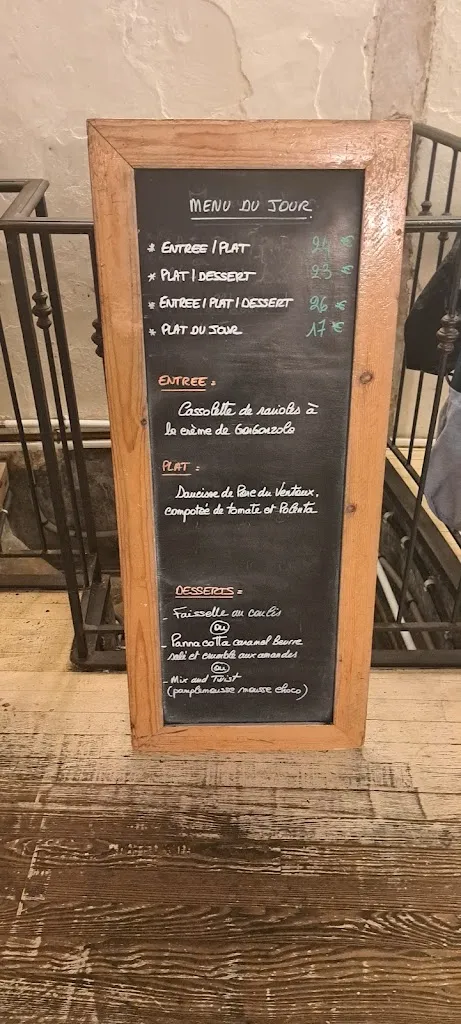 MENU DU JOUR
* ENTREE / PLAT 24 €
* PLAT / DESSERT 23 €
* ENTREE / PLAT / DESSERT 26 €
* PLAT DU JOUR 17 €
ENTREE =
Cassolette de ravioles à
la crème de GORGONZOLA
PLAT =
Saucisse de Porc du Ventoux,
compotée de tomate et Polenta
DESSERTS =
- Faisselle au coulis
OU
- Panna cotta caramel Beurre
salé et crumble aux amandes
OU
- Mix and Twist
(pamplemousse mousse choco)